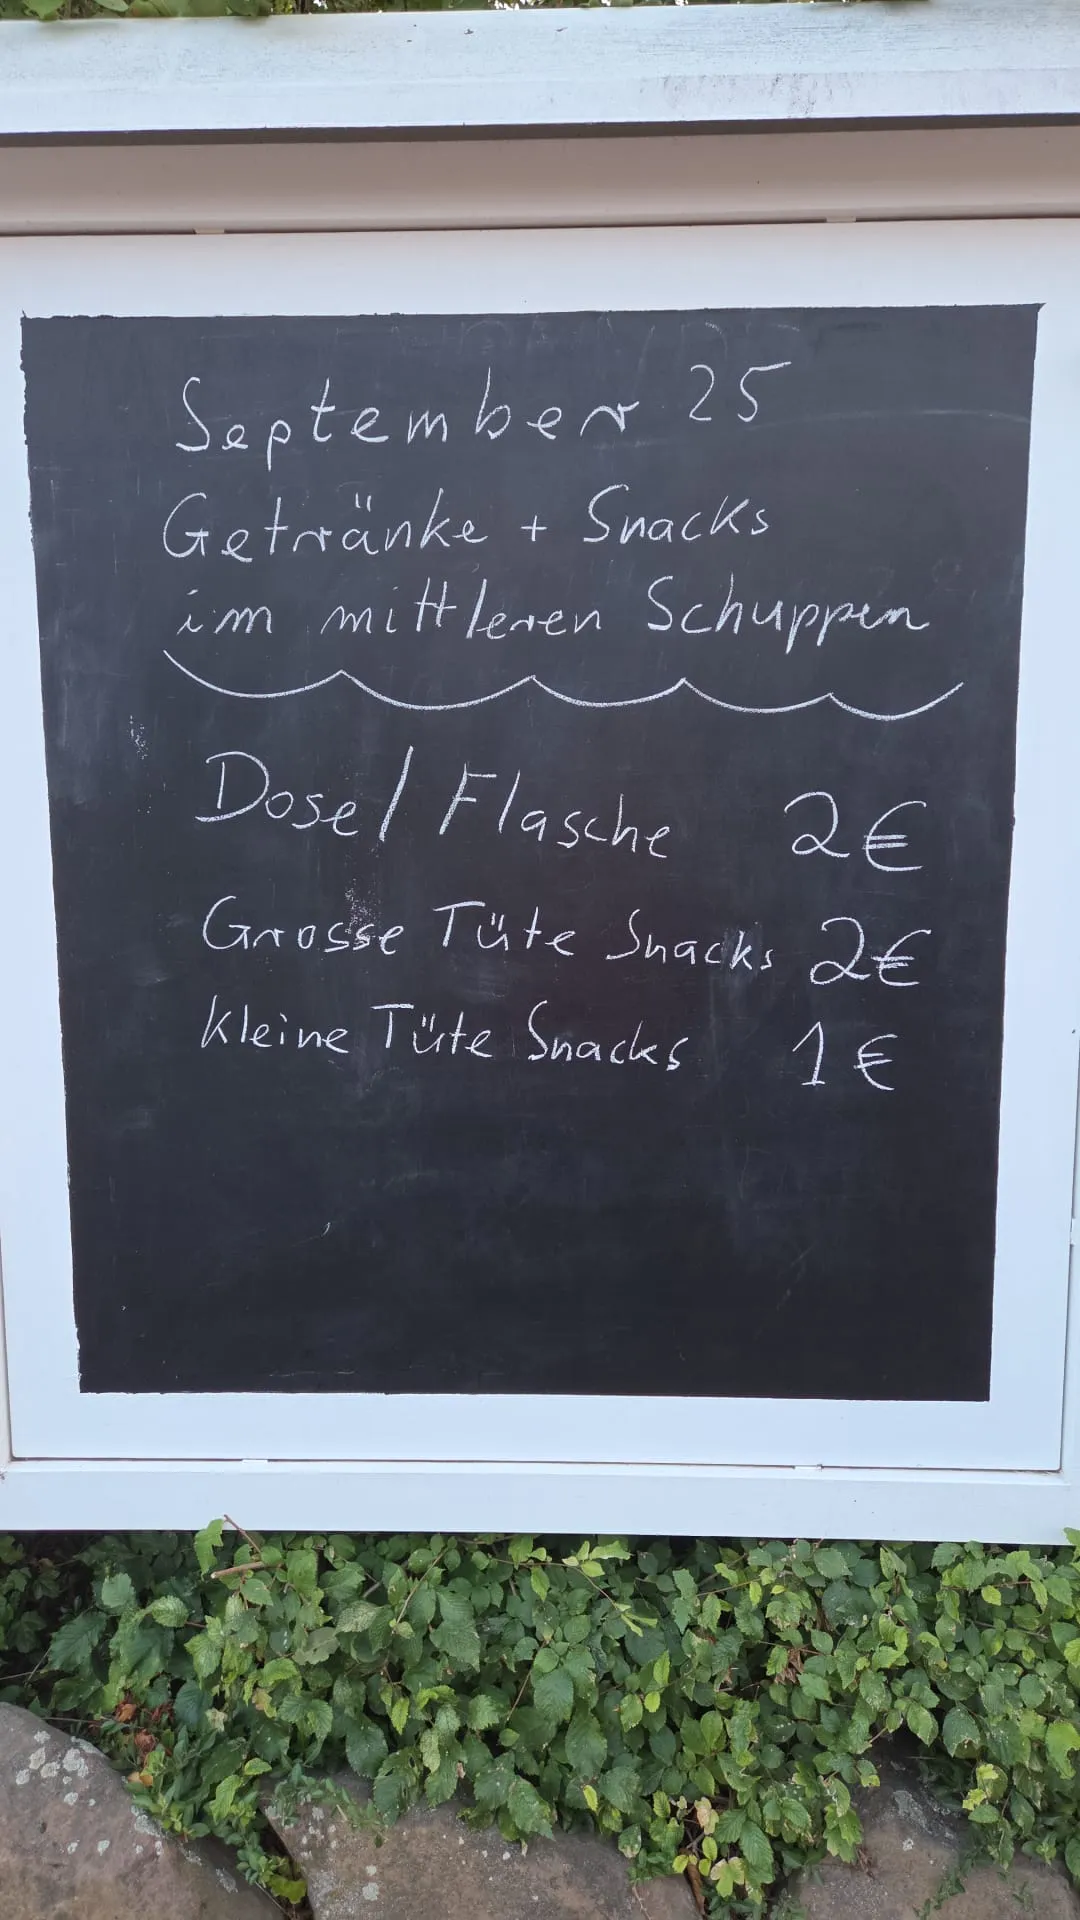 September 25
Getränke + Snacks
im mittleren Schuppen
Dose/Flasche 2€
Grosse Tüte Snacks 2€
Kleine Tüte Snacks 1€